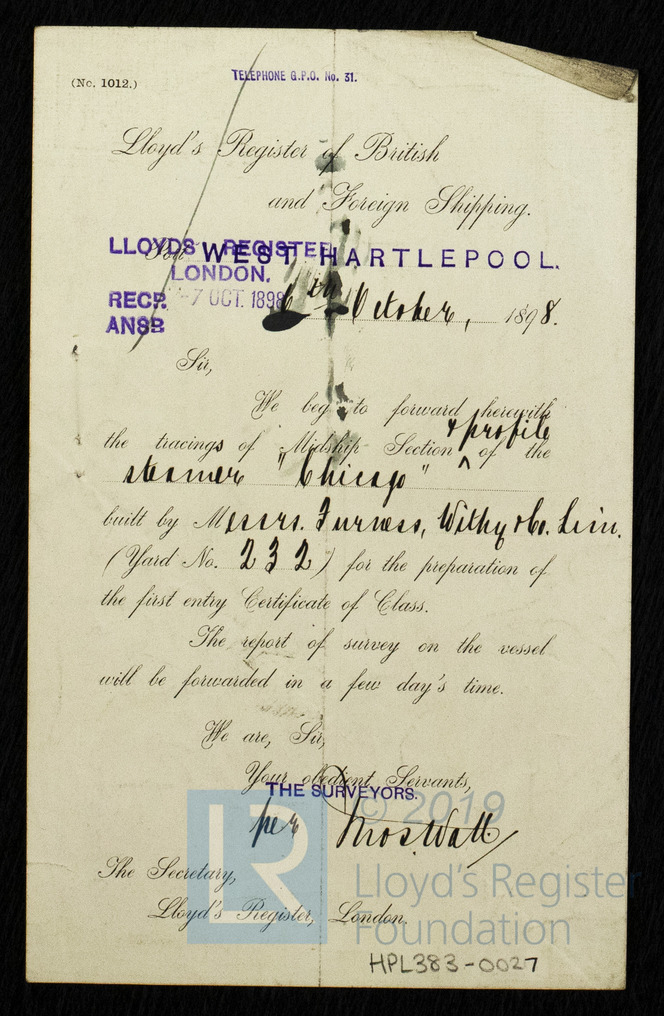 (No. 1012.)
TELEPHONE G.P.O. No. 31.
Lloyd's Register of British
and Foreign Shipping.
WEST HARTLEPOOL.
LLOYDS REGISTER
LONDON.
RECP. -7 OCT. 1898
ANSD
6th October, 1898.
Sir,
We beg to forward herewith
& profile
the tracings of Midship Section ^ of the
steamer "Chicago"
built by Messrs. Furness, Withy & Co. Lim.
(Yard No. 232) for the preparation of
the first entry Certificate of Class.
The report of survey on the vessel
will be forwarded in a few day's time.
We are, Sir,
Your obedient Servants,
THE SURVEYORS.
per Thos. Watt
The Secretary,
Lloyd's Register, London.
LR
© 2019
Lloyd's Register
Foundation
HPL383-0027